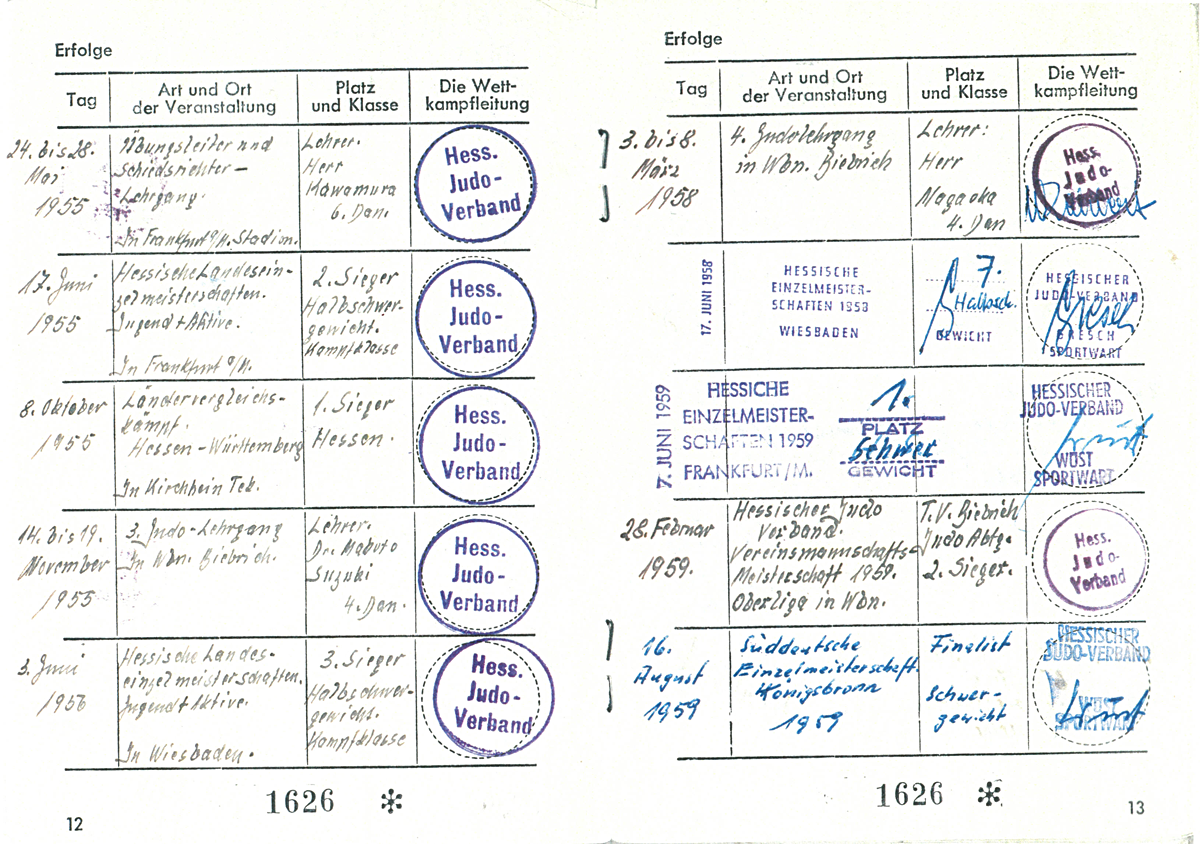 Erfolge
Tag
Art und Ort
der Veranstaltung
Platz
und Klasse
Die Wett-
kampfleitung
24. bis 28.
Mai
1955
Übungsleiter und
Schiedsrichter-
Lehrgang.
In Frankfurt a/M. Stadion.
Lehrer.
Herr
Kawamura
6. Dan.
Hess.
Judo-
Verband
17. Juni
1955
Hessische Landesein-
zelmeisterschaften.
Jugend + Aktive.
In Frankfurt a/M.
2. Sieger
Halbschwer-
gewicht.
Kampfklasse
Hess.
Judo-
Verband
8. Oktober
1955
Ländervergleichs-
kampf.
Hessen-Württemberg
In Kirchhein Tek.
1. Sieger
Hessen.
Hess.
Judo-
Verband
14. bis 19.
November
1955
3. Judo-Lehrgang
In Wbn. Biebrich.
Lehrer.
Dr.
Suzuki
4. Dan.
Hess.
Judo-
Verband
3. Juni
1956
Hessische Landes-
einzelmeisterschaften.
Jugend + Aktive.
In Wiesbaden.
3. Sieger
Halbschwer-
gewicht.
Kampfklasse
Hess.
Judo-
Verband
1626 *
12
Erfolge
Tag
Art und Ort
der Veranstaltung
Platz
und Klasse
Die Wett-
kampfleitung
3. bis 8.
März
1958
4. Judolehrgang
in Wbn. Biebrich
Lehrer:
Herr
Nagaoka
4. Dan
Hess.
Judo-
Verband
17. JUNI 1958
HESSISCHE
EINZELMEISTER-
SCHAFTEN 1958
WIESBADEN
7.
Halbsch.
GEWICHT
HESSISCHER
JUDO-VERBAND
GRESCH
SPORTWART
7. JUNI 1959
HESSICHE
EINZELMEISTER-
SCHAFTEN 1959
FRANKFURT/M.
1.
PLATZ
Schwer
GEWICHT
HESSISCHER
JUDO-VERBAND
WÜST
SPORTWART
28. Februar
1959.
Hessischer Judo
Verband.
Vereinsmannschafts-
Meisterschaft 1959.
Oberliga in Wbn.
T.V. Biebrich
Judo Abtg.
2. Sieger.
Hess.
Judo-
Verband
16.
August
1959
Süddeutsche
Einzelmeisterschaft.
Königsbronn
1959
Finalist
Schwer-
gewicht
HESSISCHER
JUDO-VERBAND
WÜST
SPORTWART
1626 *
13